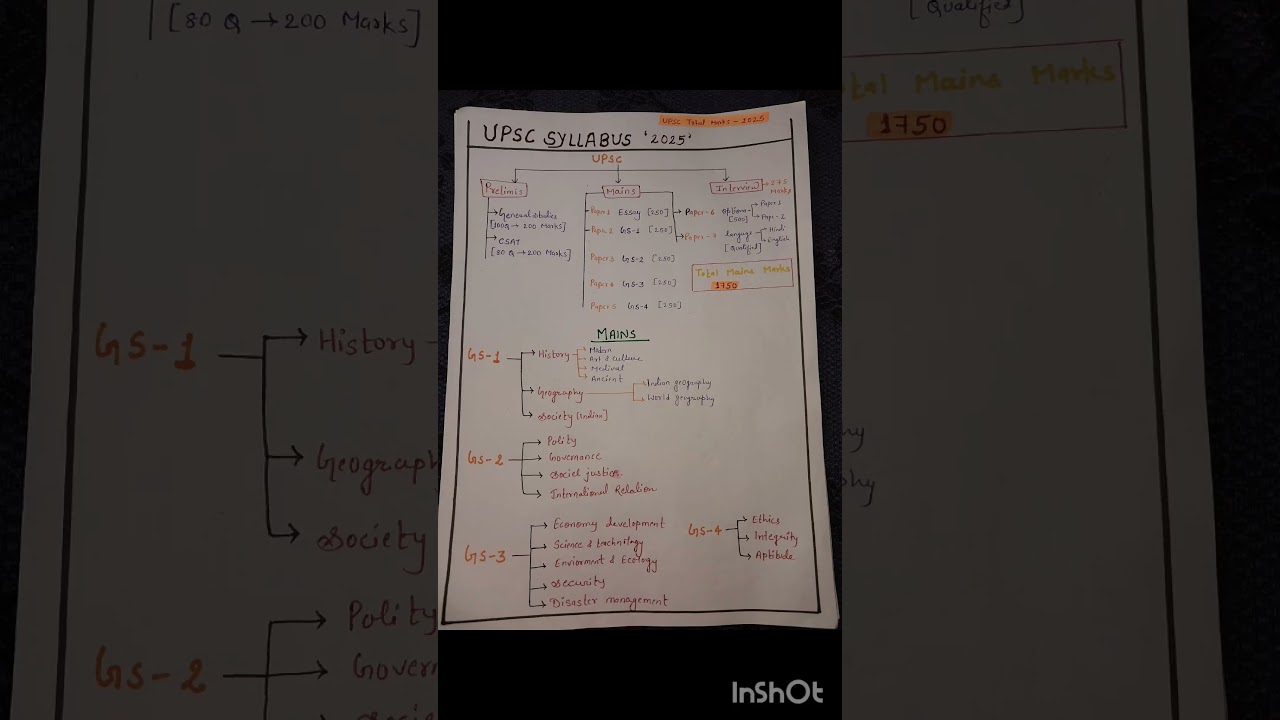 [80 Q → 200 Marks]
[Qualified]
Total Mains Marks
1750
UPSC Total Marks - 2025
UPSC SYLLABUS '2025'
UPSC
Prelimis
Mains
Interview → 275 Marks
General studies
[100Q → 200 Marks]
CSAT
[80 Q → 200 Marks]
Paper 1 Essay [250]
Paper 2 GS-1 [250]
Paper 3 GS-2 [250]
Paper 4 GS-3 [250]
Paper 5 GS-4 [250]
Paper-6 Optional [500] Paper 1
Paper-2
Paper-7 language [Qualified] Hindi
English
Total Mains Marks
1750
MAINS
GS-1
History
Modern
Art & culture
Medival
Ancient
Geography
Indian geography
World geography
Society [Indian]
GS-2
Polity
Governance
Social justice
International Relation
GS-3
Economy development
Science & technology
Enviorment & Ecology
Security
Disaster management
GS-4
Ethics
Integrity
Aptitude
GS-1
History
Geography
Society
GS-2
Polity
InShOt